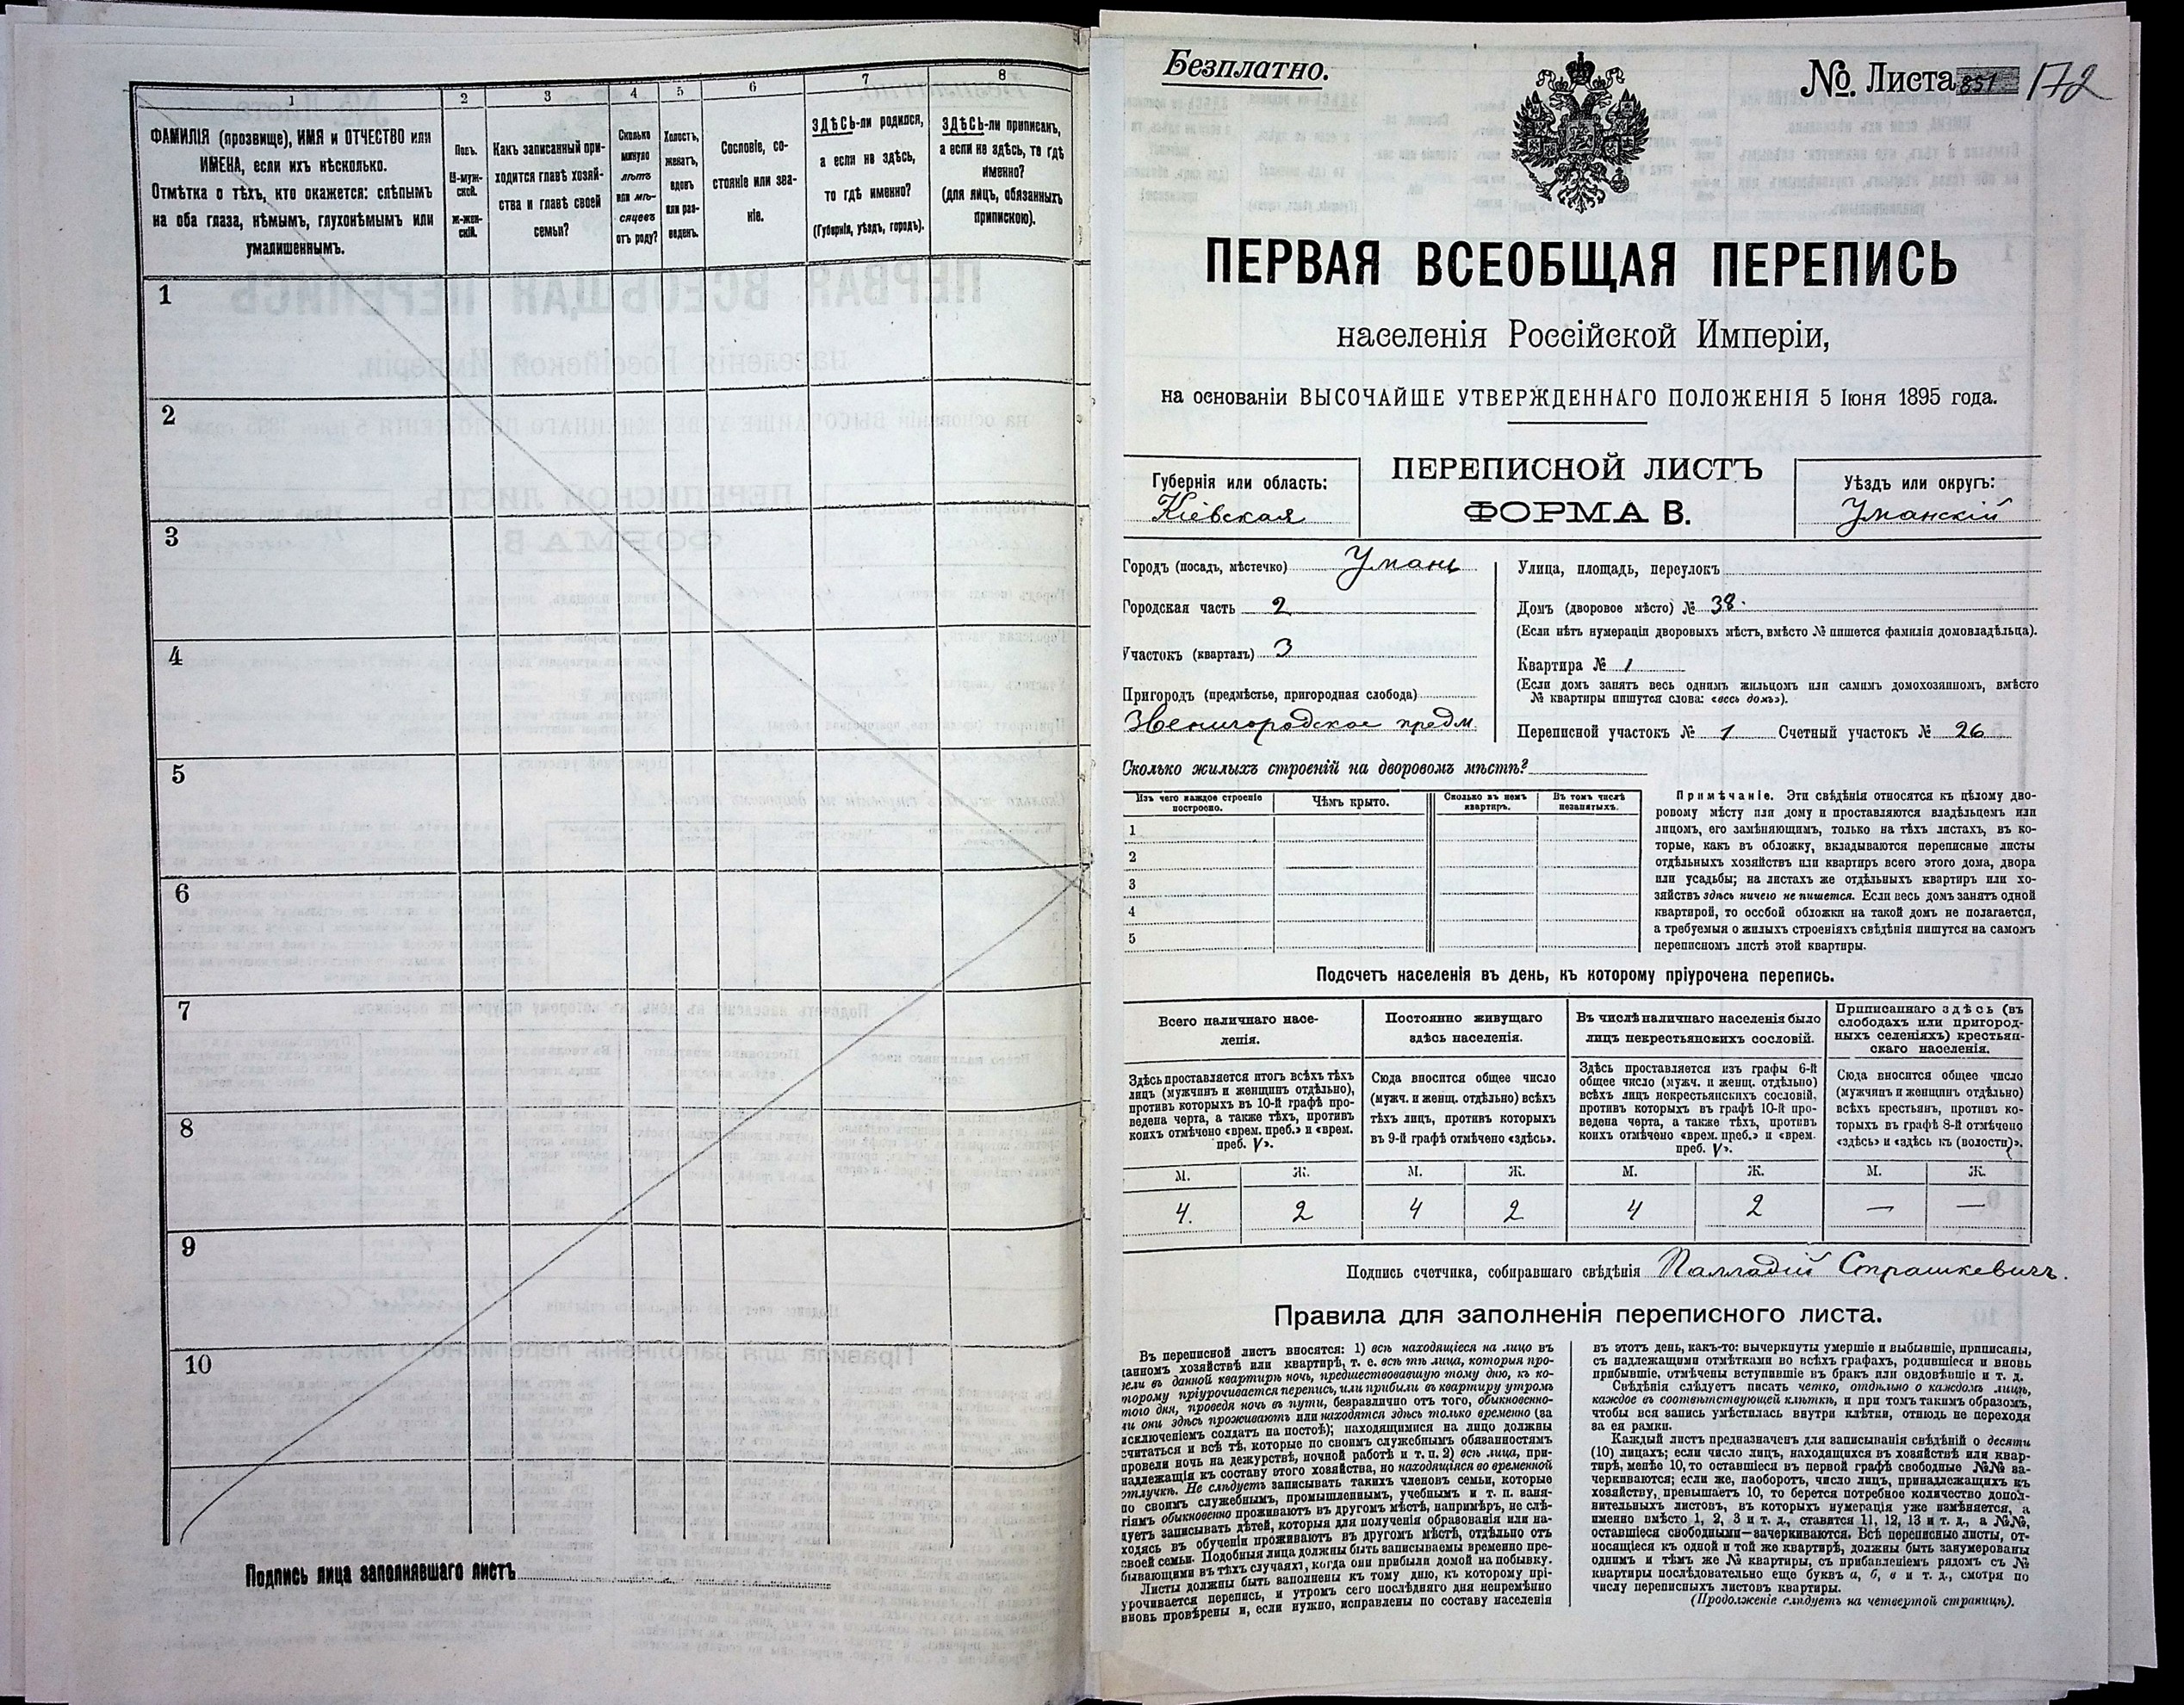 1
2
3
4
5
6
7
8
ФАМИЛІЯ (прозвище), ИМЯ и ОТЧЕСТВО или
ИМЕНА, если ихъ нѣсколько.
Отмѣтка о тѣхъ, кто окажется: слѣпымъ
на оба глаза, нѣмымъ, глухонѣмымъ или
умалишеннымъ.
Полъ.
М-муж-
ской.
Ж-жен-
скій.
Какъ записанный при-
ходится главѣ хозяй-
ства и главѣ своей
семьи?
Сколько
минуло
лѣтъ
или мѣ-
сяцевъ
отъ роду?
Холостъ,
женатъ,
вдовъ
или раз-
веденъ.
Сословіе, со-
стояніе или зва-
ніе.
ЗДѢСЬ-ли родился,
а если не здѣсь,
то гдѣ именно?
(Губернія, уѣздъ, городъ).
ЗДѢСЬ-ли приписанъ,
а если не здѣсь, то гдѣ
именно?
(для лицъ, обязанныхъ
припискою).
1
2
3
4
5
6
7
8
9
10
Подпись лица заполнявшаго листъ
Безплатно.
№. Листа 851 172
ПЕРВАЯ ВСЕОБЩАЯ ПЕРЕПИСЬ
населенія Россійской Имперіи,
на основаніи ВЫСОЧАЙШЕ УТВЕРЖДЕННАГО ПОЛОЖЕНІЯ 5 Іюня 1895 года.
Губернія или область:
Кіевская
ПЕРЕПИСНОЙ ЛИСТЪ
ФОРМА В.
Уѣздъ или округъ:
Уманскій
Городъ (посадъ, мѣстечко) Умань
Городская часть 2
Участокъ (кварталъ) 3
Пригородъ (предмѣстье, пригородная слобода)
Звенигородское предм.
Улица, площадь, переулокъ
Домъ (дворовое мѣсто) № 38.
(Если нѣтъ нумераціи дворовыхъ мѣстъ, вмѣсто № пишется фамилія домовладѣльца).
Квартира № 1
(Если домъ занятъ весь однимъ жильцомъ или самимъ домохозяиномъ, вмѣсто
№ квартиры пишутся слова: «весь домъ»).
Переписной участокъ № 1 Счетный участокъ № 26
Сколько жилыхъ строеній на дворовомъ мѣстѣ?
Изъ чего каждое строеніе
построено.
Чѣмъ крыто.
Сколько въ немъ
квартиръ.
Въ томъ числѣ
незанятыхъ.
1
2
3
4
5
Примѣчаніе. Эти свѣдѣнія относятся къ цѣлому дво-
ровому мѣсту или дому и проставляются владѣльцемъ или
лицомъ, его замѣняющимъ, только на тѣхъ листахъ, въ ко-
торые, какъ въ обложку, вкладываются переписные листы
отдѣльныхъ хозяйствъ или квартиръ всего этого дома, двора
или усадьбы; на листахъ же отдѣльныхъ квартиръ или хо-
зяйствъ здѣсь ничего не пишется. Если весь домъ занятъ одной
квартирой, то особой обложки на такой домъ не полагается,
а требуемыя о жилыхъ строеніяхъ свѣдѣнія пишутся на самомъ
переписномъ листѣ этой квартиры.
Подсчетъ населенія въ день, къ которому пріурочена перепись.
Всего наличнаго насе-
ленія.
Здѣсь проставляется итогъ всѣхъ тѣхъ
лицъ (мужчинъ и женщинъ отдѣльно),
противъ которыхъ въ 10-й графѣ про-
ведена черта, а также тѣхъ, противъ
коихъ отмѣчено «врем. преб.» и «врем.
преб. V».
Постоянно живущаго
здѣсь населенія.
Сюда вносится общее число
(мужч. и женщ. отдѣльно) всѣхъ
тѣхъ лицъ, противъ которыхъ
въ 9-й графѣ отмѣчено «здѣсь».
Въ числѣ наличнаго населенія было
лицъ некрестьянскихъ сословій.
Здѣсь проставляется изъ графы 6-й
общее число (мужч. и женщ. отдѣльно)
всѣхъ лицъ некрестьянскихъ сословій,
противъ которыхъ въ графѣ 10-й про-
ведена черта, а также тѣхъ, противъ
коихъ отмѣчено «врем. преб.» и «врем.
преб. V».
Приписаннаго здѣсь (въ
слободахъ или пригород-
ныхъ селеніяхъ) крестьян-
скаго населенія.
Сюда вносится общее число
(мужчинъ и женщинъ отдѣльно)
всѣхъ крестьянъ, противъ ко-
торыхъ въ графѣ 8-й отмѣчено
«здѣсь» и «здѣсь къ (волости)».
М. Ж. М. Ж. М. Ж. М. Ж.
4. 2 4 2 4 2 — —
Подпись счетчика, собиравшаго свѣдѣнія Палладій Страшкевичъ.
Правила для заполненія переписного листа.
Въ переписной листъ вносятся: 1) всѣ находящіеся на лицо въ
данномъ хозяйствѣ или квартирѣ, т. е. всѣ тѣ лица, которыя про-
вели въ данной квартирѣ ночь, предшествовавшую тому дню, къ ко-
торому пріурочивается перепись, или прибыли въ квартиру утромъ
того дня, проведя ночь въ пути, безразлично отъ того, обыкновенно-
ли они здѣсь проживаютъ или находятся здѣсь только временно (за
исключеніемъ солдатъ на постоѣ); находящимися на лицо должны
считаться и всѣ тѣ, которые по своимъ служебнымъ обязанностямъ
провели ночь на дежурствѣ, ночной работѣ и т. п. 2) всѣ лица, при-
надлежащія къ составу этого хозяйства, но находящіяся во временной
отлучкѣ. Не слѣдуетъ записывать такихъ членовъ семьи, которые
по своимъ служебнымъ, промышленнымъ, учебнымъ и т. п. заня-
тіямъ обыкновенно проживаютъ въ другомъ мѣстѣ, напримѣръ, не слѣ-
дуетъ записывать дѣтей, которыя для полученія образованія или на-
ходясь въ обученіи проживаютъ въ другомъ мѣстѣ, отдѣльно отъ
своей семьи. Подобныя лица должны быть записываемы временно пре-
бывающими въ тѣхъ случаяхъ, когда они прибыли домой на побывку.
Листы должны быть заполнены къ тому дню, къ которому прі-
урочивается перепись, и утромъ сего послѣдняго дня непремѣнно
вновь провѣрены и, если нужно, исправлены по составу населенія
въ этотъ день, какъ-то: вычеркнуты умершіе и выбывшіе, приписаны,
съ надлежащими отмѣтками во всѣхъ графахъ, родившіеся и вновь
прибывшіе, отмѣчены вступившіе въ бракъ или овдовѣвшіе и т. д.
Свѣдѣнія слѣдуетъ писать четко, отдѣльно о каждомъ лицѣ,
каждое въ соотвѣтствующей клѣткѣ, и при томъ такимъ образомъ,
чтобы вся запись умѣстилась внутри клѣтки, отнюдь не переходя
за ея рамки.
Каждый листъ предназначенъ для записыванія свѣдѣній о десяти
(10) лицахъ; если число лицъ, находящихся въ хозяйствѣ или квар-
тирѣ, менѣе 10, то оставшіеся въ первой графѣ свободные №№ за-
черкиваются; если же, наоборотъ, число лицъ, принадлежащихъ къ
хозяйству, превышаетъ 10, то берется потребное количество допол-
нительныхъ листовъ, въ которыхъ нумерація уже измѣняется, а
именно вмѣсто 1, 2, 3 и т. д., ставятся 11, 12, 13 и т. д., а №№,
оставшіеся свободными—зачеркиваются. Всѣ переписные листы, от-
носящіеся къ одной и той же квартирѣ, должны быть занумерованы
однимъ и тѣмъ же № квартиры, съ прибавленіемъ рядомъ съ №
квартиры послѣдовательно еще буквъ а, б, в и т. д., смотря по
числу переписныхъ листовъ квартиры.
(Продолженіе слѣдуетъ на четвертой страницѣ).